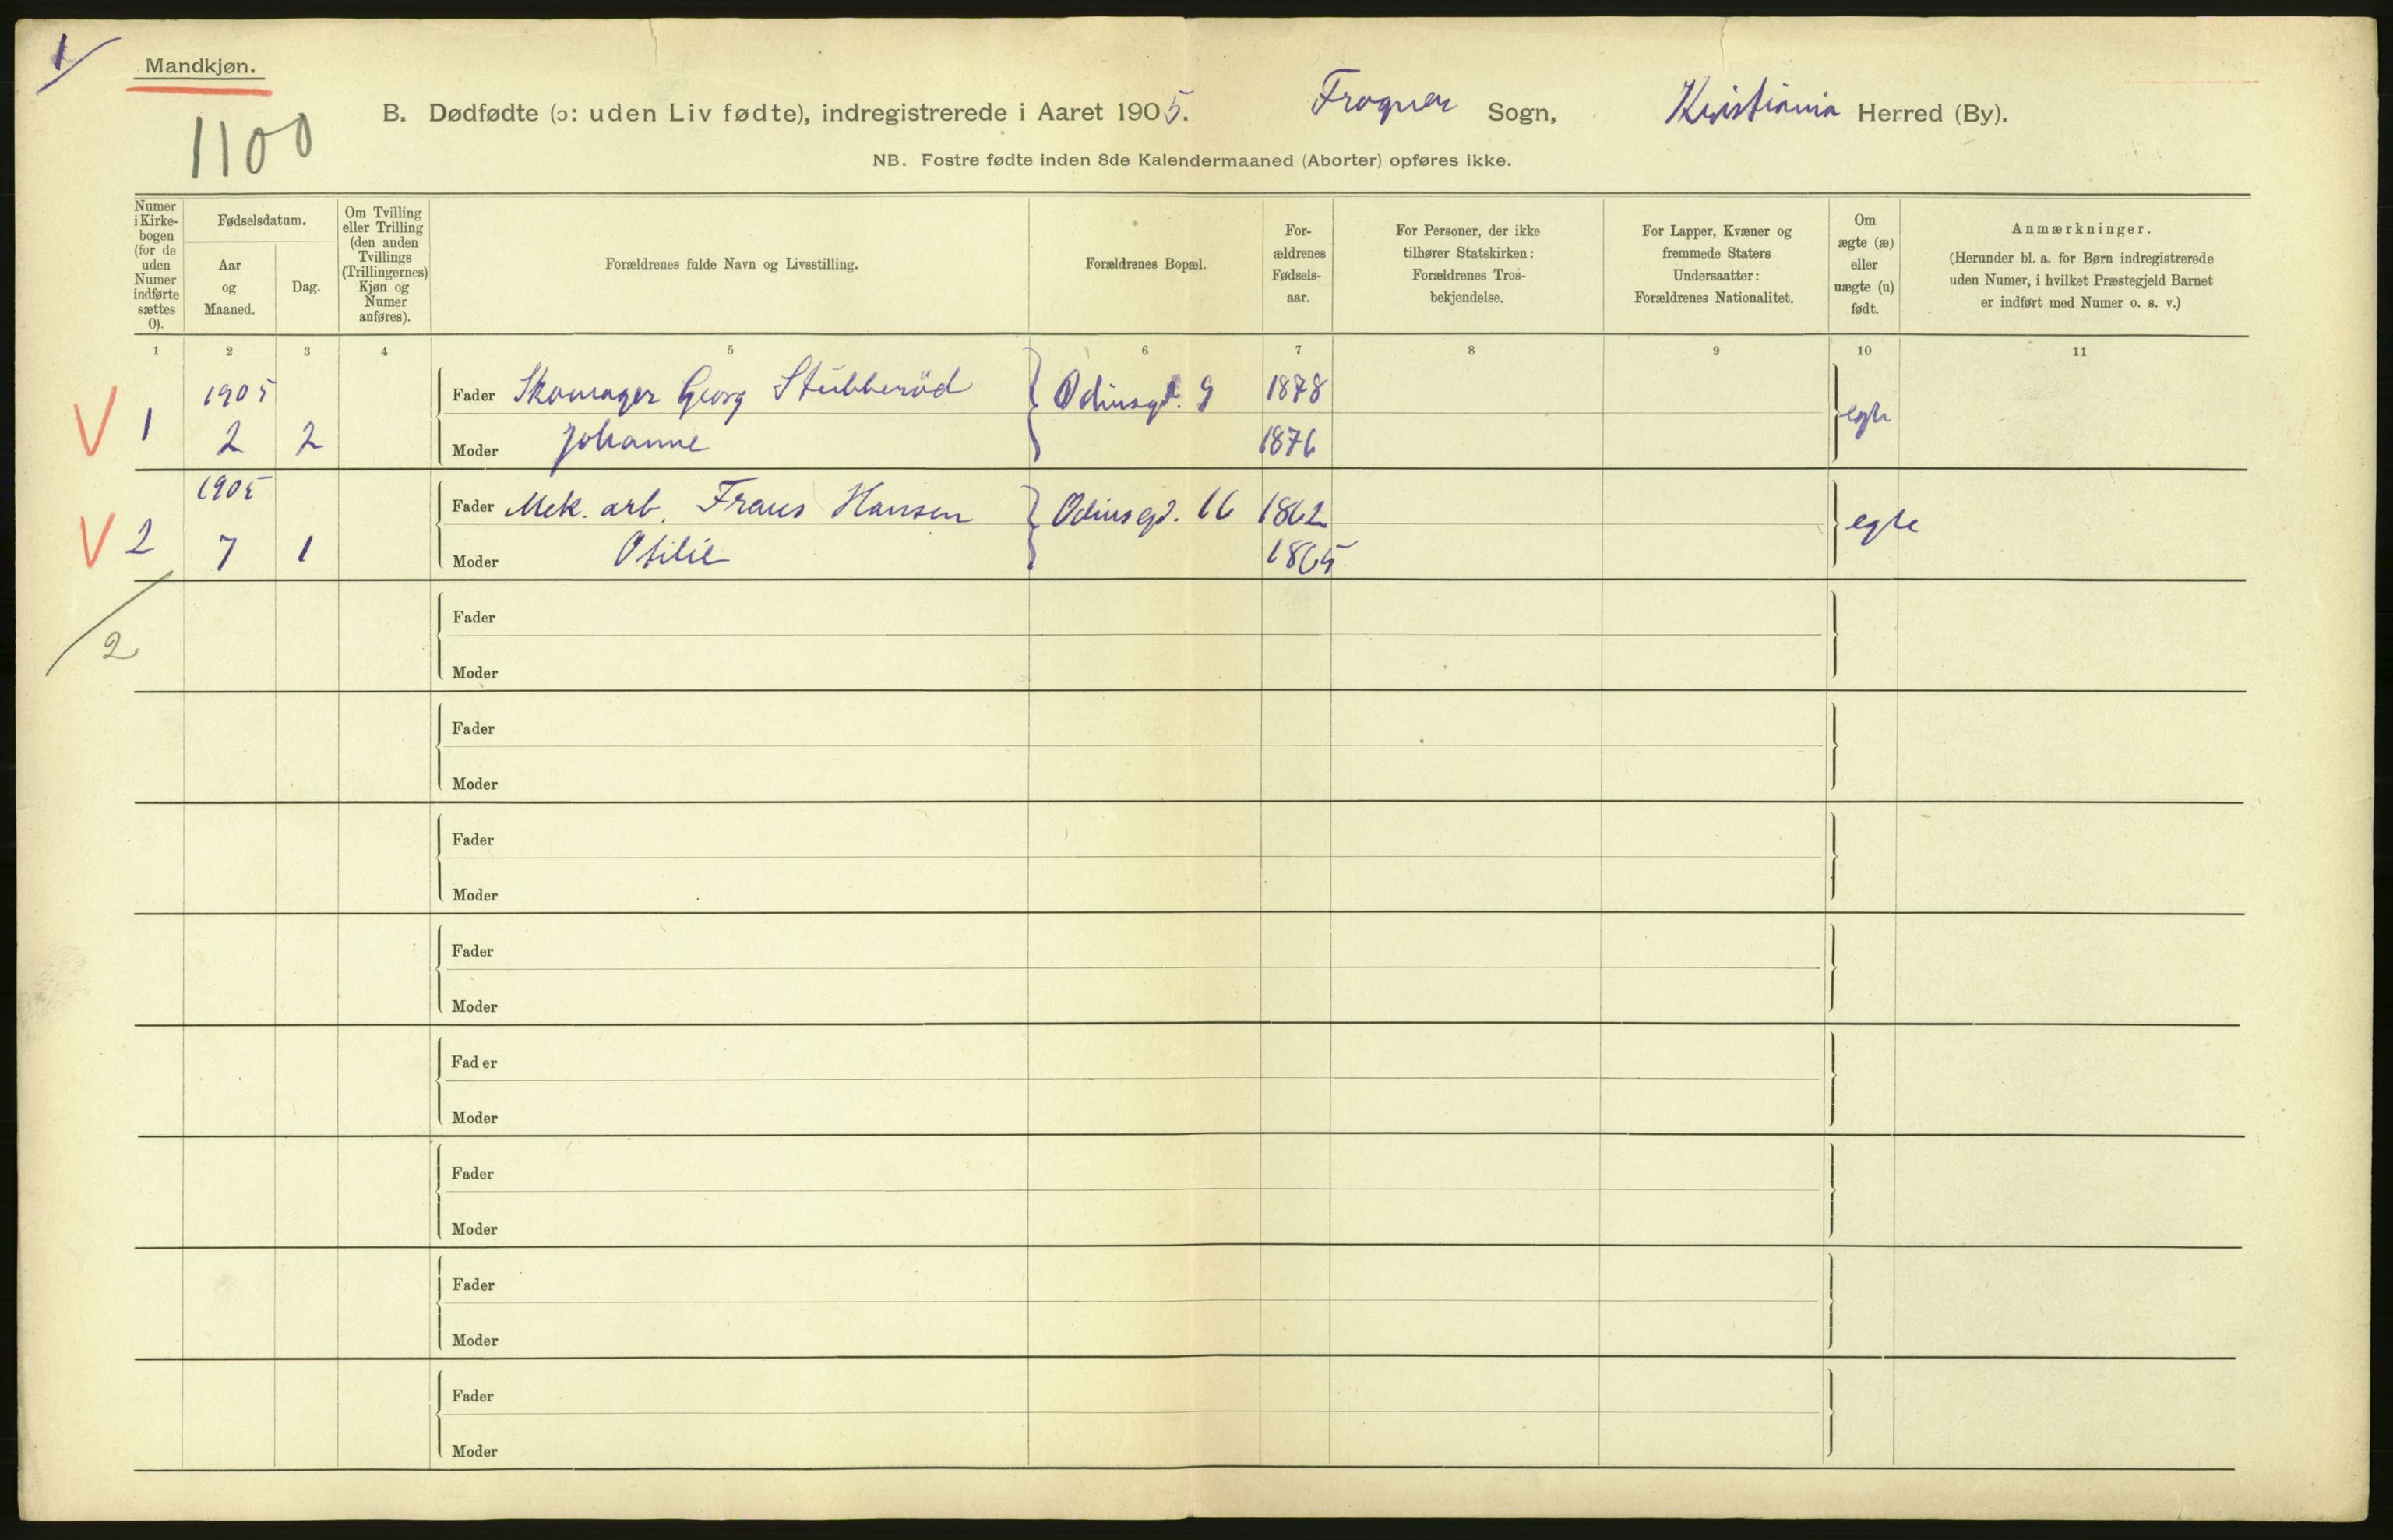 1
Mandkjøn.
1100
B. Dødfødte (ɔ: uden Liv fødte), indregistrerede i Aaret 1905. Frogner Sogn, Kristiania Herred (By).
NB. Fostre fødte inden 8de Kalendermaaned (Aborter) opføres ikke.
Numer
i Kirke-
bogen
(for de
uden
Numer
indførte
sættes
0).
Fødselsdatum.
Aar
og
Maaned.
Dag.
Om Tvilling
eller Trilling
(den anden
Tvillings
(Trillingernes)
Kjøn og
Numer
anføres).
Forældrenes fulde Navn og Livsstilling.
Forældrenes Bopæl.
For-
ældrenes
Fødsels-
aar.
For Personer, der ikke
tilhører Statskirken:
Forældrenes Tros-
bekjendelse.
For Lapper, Kvæner og
fremmede Staters
Undersaatter:
Forældrenes Nationalitet.
Om
ægte (æ)
eller
uægte (u)
født.
Anmærkninger.
(Herunder bl. a. for Børn indregistrerede
uden Numer, i hvilket Præstegjeld Barnet
er indført med Numer o. s. v.)
1 2 3 4 5 6 7 8 9 10 11
1905 Fader Skomager Georg Stubberöd Odinsgd. 9 1878
V 1 2 2 Moder Johanne 1876 egte
1905 Fader Mek. arb. Frans Hansen Odinsgd. 16 1862 egte
V 2 7 1 Moder Otilie 1865
Fader
2
Moder
Fader
Moder
Fader
Moder
Fader
Moder
Fader
Moder
Fader
Moder
Fader
Moder
Fader
Moder